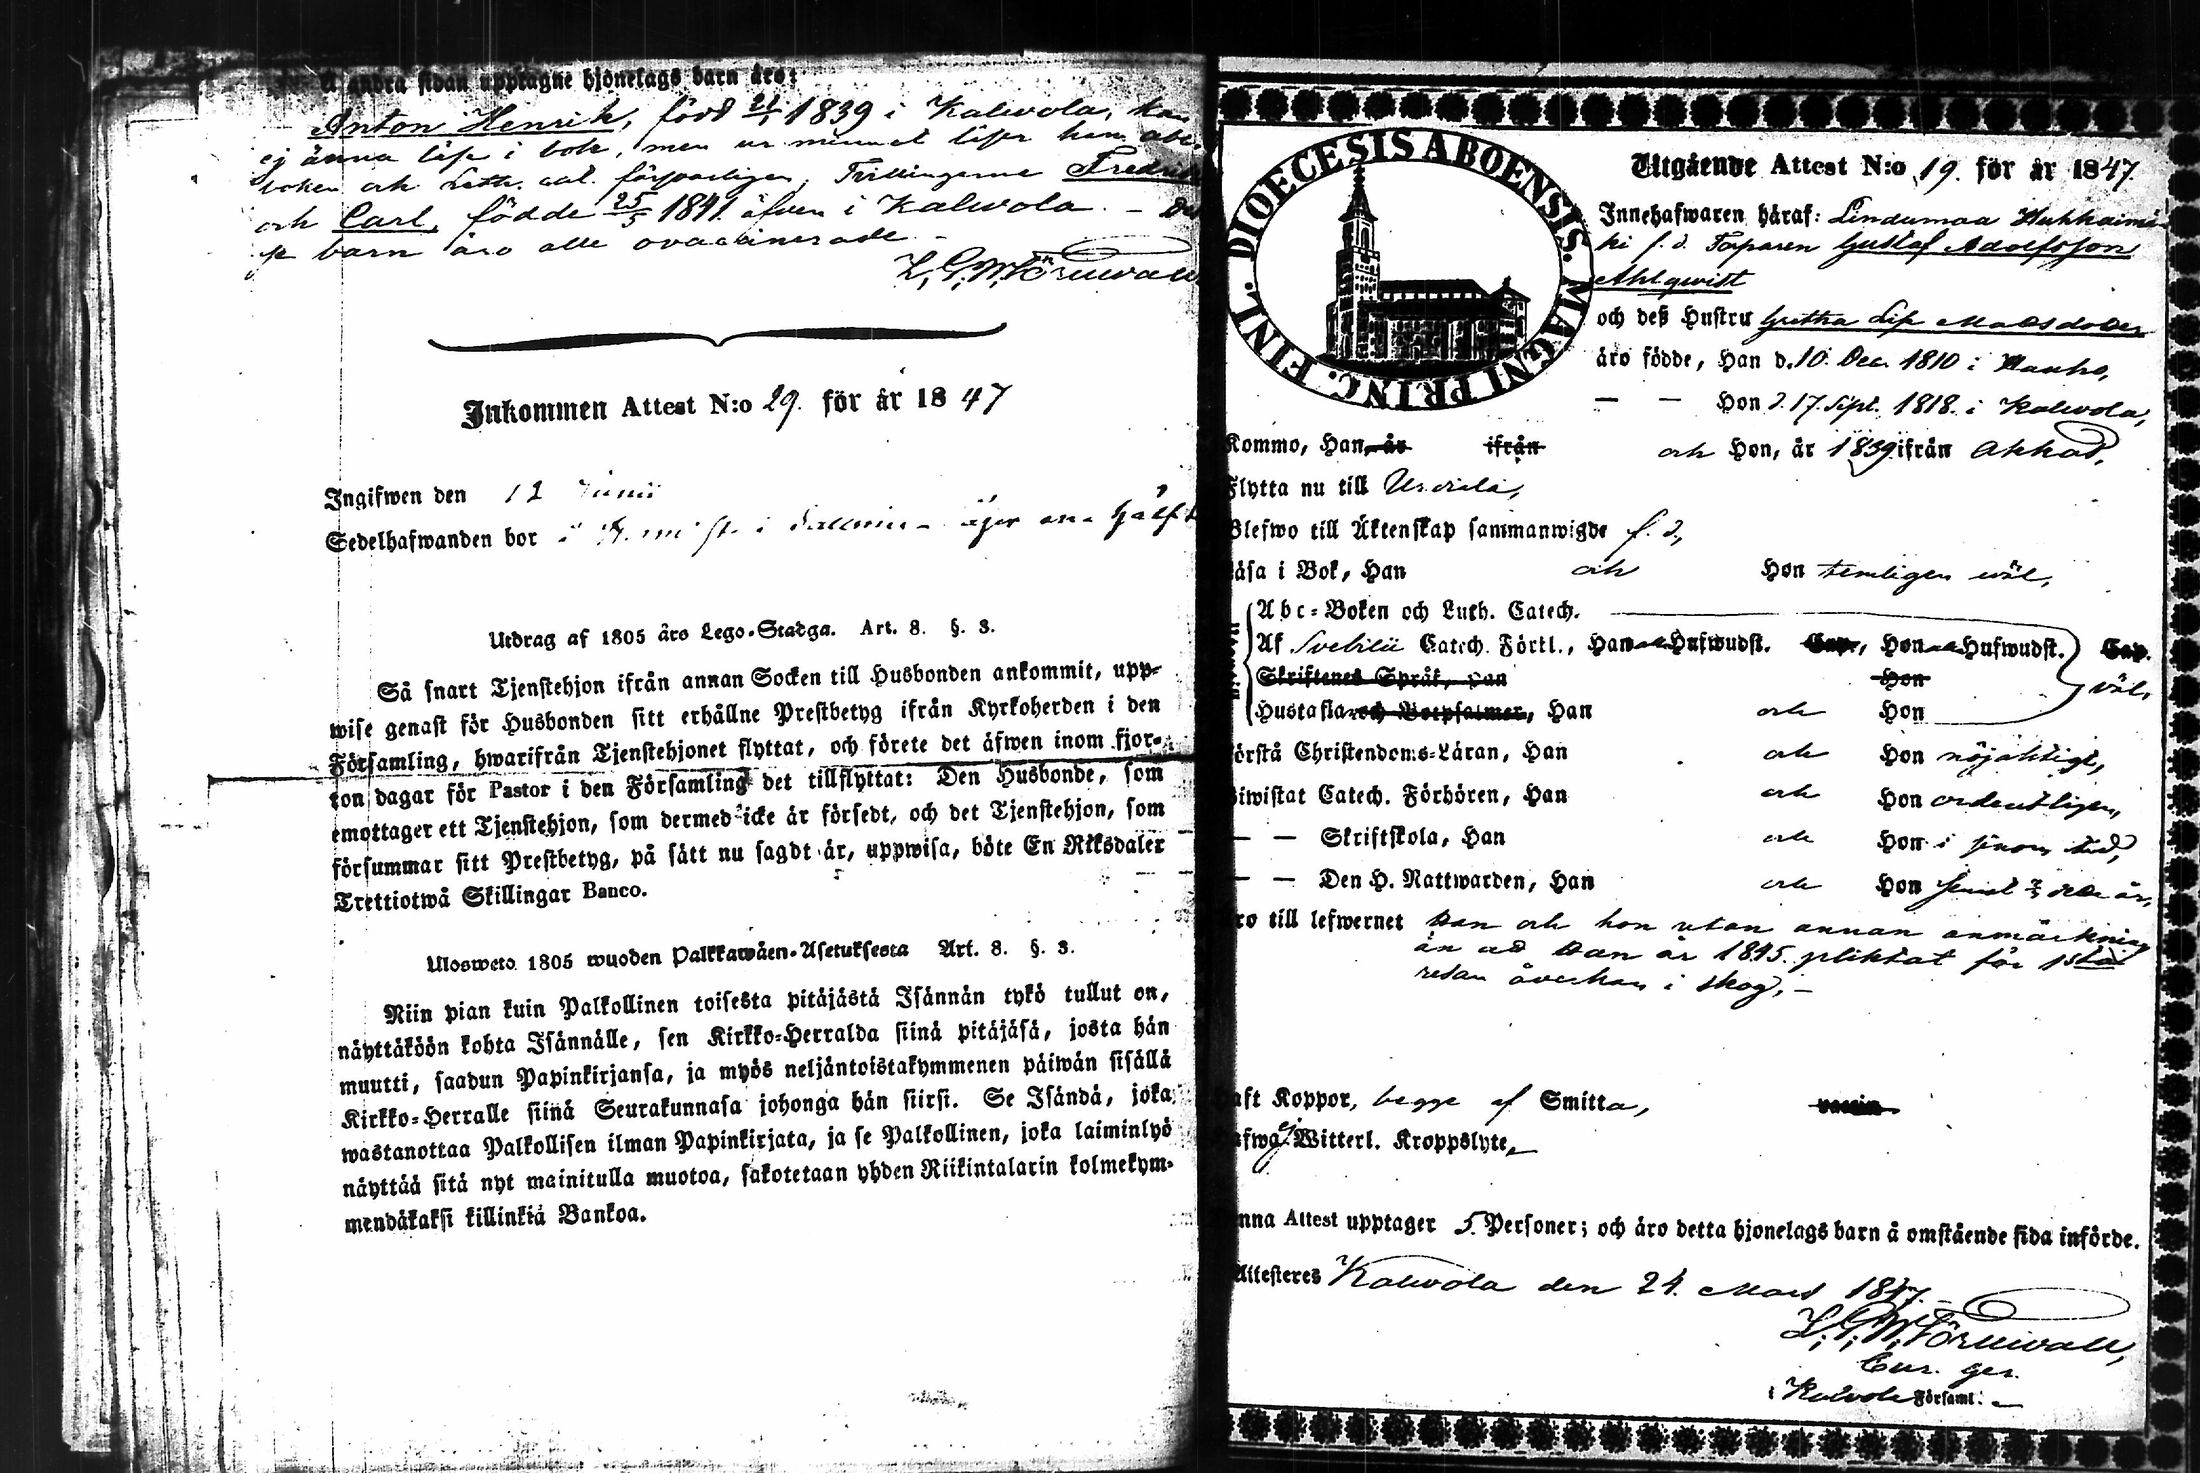 å andra sidan upptagne hjonelags barn äro:
Anton Henrik, född 21/1 1839 i Kalvola, kan
ej ännu läsa i bok, men ur minnet läser han abc-
boken och Luth. cat. försvarligen; Tvillingarne Fredrik
och Carl, födde 25/5 1841 äfven i Kalvola. –
barn äro alle ovaccinerade. –
L. G. W. Törnwall
Inkommen Attest N:o 29. för år 1847
Ingifwen den 12 Junii
Sedelhafwanden bor i
Utdrag af 1805 års Lego-Stadga. Art. 8. §. 3.
Så snart Tjenstehjon ifrån annan Socken till Husbonden ankommit, upp-
wise genast för Husbonden sitt erhållne Prestbetyg ifrån Kyrkoherden i den
Församling, hwarifrån Tjenstehjonet flyttat, och förete det äfwen inom fjor-
ton dagar för Pastor i den Församling det tillflyttat: Den Husbonde, som
emottager ett Tjenstehjon, som dermed icke är försedt, och det Tjenstehjon, som
försummar sitt Prestbetyg, på sätt nu sagdt är, uppwisa, böte En Riksdaler
Trettiotwå Skillingar Banco.
Ulosweto 1805 wuoden Palkkawäen-Asetuksesta Art. 8. §. 3.
Niin pian kuin Palkollinen toisesta pitäjästä Isännän tykö tullut on,
näyttäköön kohta Isännälle, sen Kirkko-Herralda siinä pitäjäsä, josta hän
muutti, saadun Papinkirjansa, ja myös neljäntoistakymmenen päiwän sisällä
Kirkko-Herralle siinä Seurakunnasa johonga hän siirsi. Se Isändä, joka
wastanottaa Palkollisen ilman Papinkirjata, ja se Palkollinen, joka laiminlyö
näyttää sitä nyt mainitulla muotoa, sakotetaan yhden Riikintalarin kolmekym-
mendäkaksi killinkiä Bankoa.
DIOECESIS ABOENSIS. MAGNI PRINC. FINL.
Utgående Attest N:o 19. för år 1847.
Innehafwaren häraf: Lindumaa
f. d. Torparen Gustaf Adolfsson
Ahlqwist
och deß Hustru Gretha Lisa Mattsdotter
äro födde, Han d. 10. Dec. 1810 i Hauho,
— — Hon d. 17. Sept. 1818. i Kalvola,
Kommo, Han, år ifrån och Hon, år 1839 ifrån Akkas,
Flytta nu till Urdiala,
Blefwo till Äktenskap sammanwigde f. d.,
Läsa i Bok, Han och Hon temligen wäl,
Abc-Boken och Luth. Catech.
Af Svebilii Catech. Förtl., Han Hufwudst. Cap., Hon Hufwudst. Cap.
Skriftenes Språk, Han Hon wäl,
Hustaflan och Botpsalmer, Han och Hon
Förstå Christendoms-Läran, Han och Hon nöjaktigt,
Biwistat Catech. Förhören, Han och Hon ordentligen,
— — Skriftskola, Han och Hon i sinom tid,
— — Den H. Nattwarden, Han och Hon senast
Äro till lefwernet Han och hon utan annan anmärkning
än at Han år 1845. pliktat för 1sta
resan åverkan i skog, –
Haft Koppor, begge af Smitta, vaccin.
Hafwa ej Witterl. Kroppslyte,
Denna Attest upptager 5. Personer; och äro detta hjonelags barn å omstående sida införde.
Attesteres Kalvola den 24. Mars 1847. –
L. G. W. Törnwall,
Cur. ger.
i Kalvola Församl. –